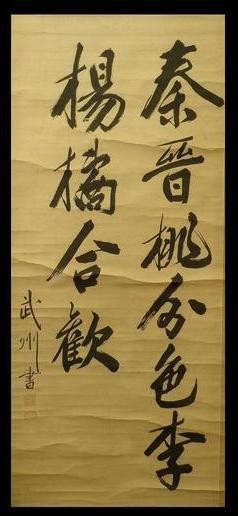 秦晉桃分色李
楊橘合歡
武州書